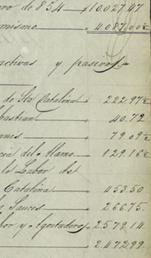 vo de 854 10,027.47.
mismo 4,087.00
activas y pasivas
de Sta Catalina 222.97
bastian 40.72.
nes 79.09
cia del Alamo 129.16
la Labor del
Catalina 453.50
Sauces 266.75.
bor y Agostadero 2,579.14.
2,472.99.